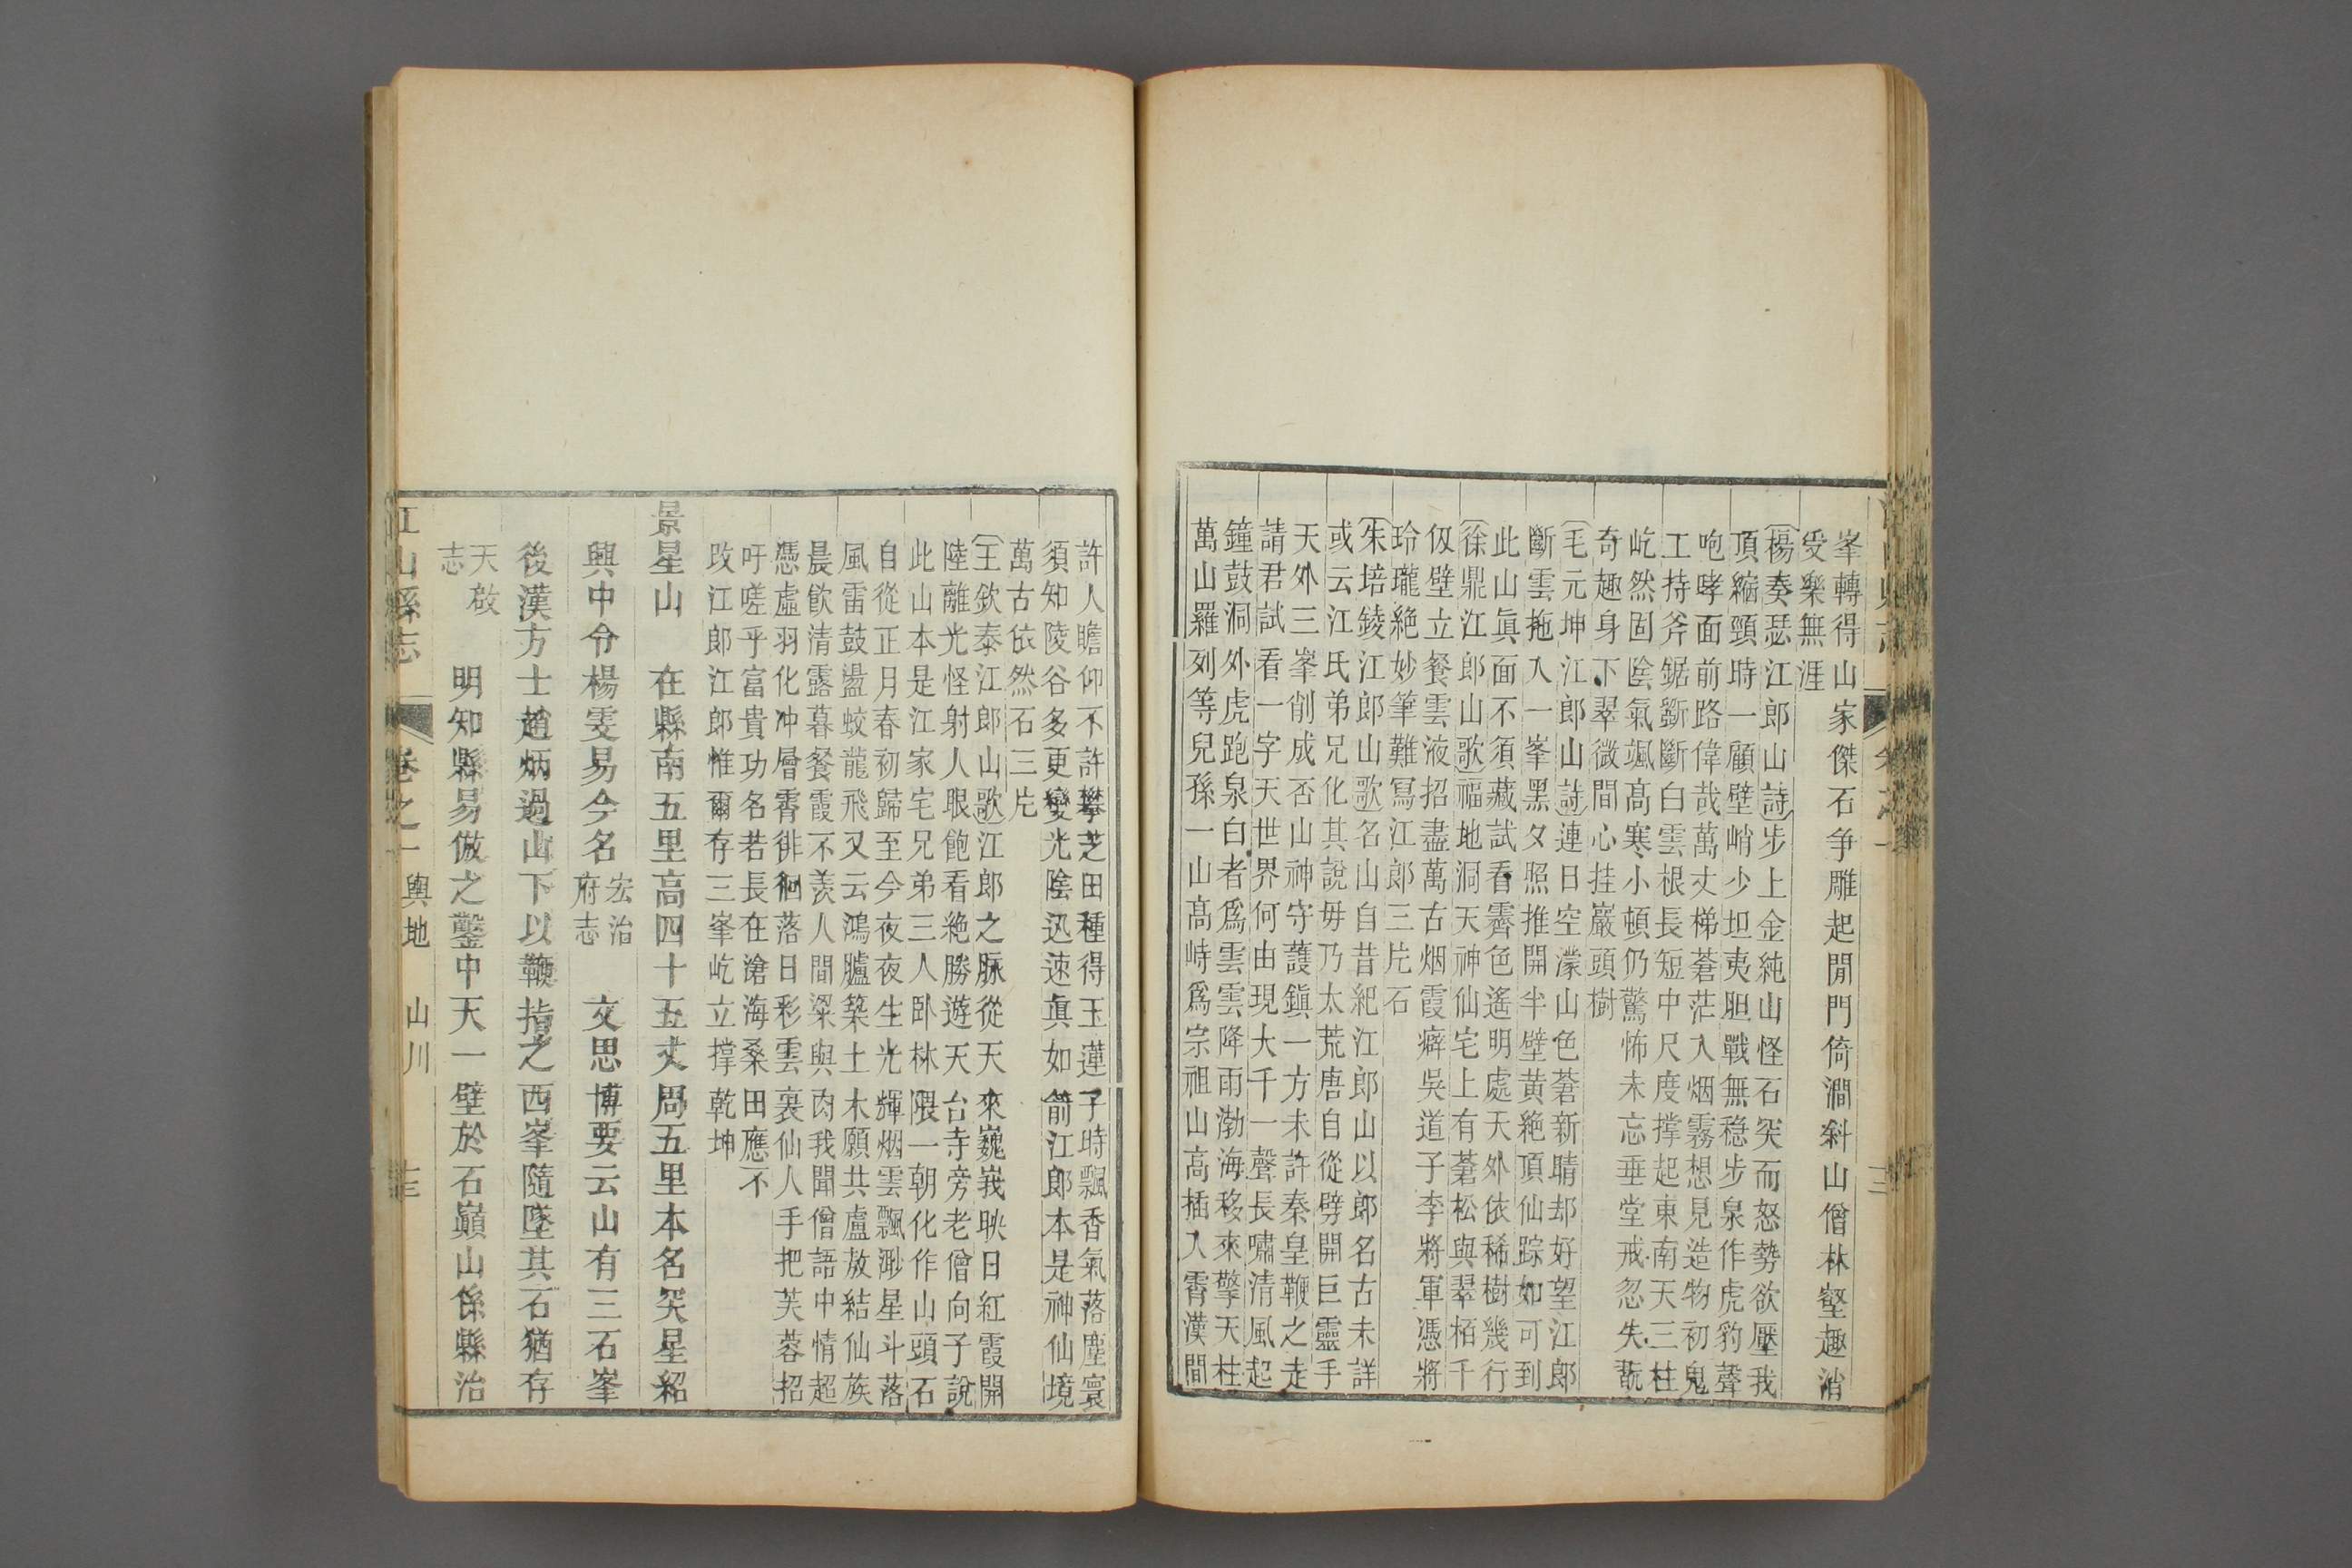 峯轉得山家傑石争雕起閒門倚澗斜山僧林壑趣消
受樂無涯
楊奏瑟江郎山詩步上金純山怪石突而怒勢欲壓我
頂縮頸時一顧壁峭少坦夷胆戰無稳步泉作虎豹聲
咆哮面前路偉哉萬丈梯蒼茫入烟霧想見造物初鬼
工持斧鋸斵斷白雲根長短中尺度撑起東南天三柱
屹然固陰氣颯高寒小頓仍驚怖未忘垂堂戒忽失
奇趣身下翠微間心挂巖頭樹
毛元坤江郎山詩連日空濛山色蒼新晴却好望江郎
斷雲拖入一峯黑夕照推開半壁黄絶頂仙踪如可到
此山眞面不須藏試看霽色遙明處天外依稀樹幾行
徐鼎江郎山歌福地洞天神仙宅上有蒼松與翠栢千
仭壁立餐雲液招盡萬古烟霞癖吳道子李將軍憑將
玲瓏絶妙筆難寫江郎三片石
朱培錂江郎山歌名山自昔紀江郎山以郎名古未詳
或云江氏弟兄化其說毋乃太荒唐自從劈開巨靈手
天外三峯削成否山神守護鎭一方未許秦皇鞭之走
請君試看一字天世界何由現大千一聲長嘯清風起
鐘鼓洞外虎跑泉白者爲雲雲降雨渤海移來擎天柱
萬山羅列等兒孫一山高峙爲宗祖山高插入霄漢間
許人瞻仰不許攀芝田種得玉蓮子時飄香氣落塵寰
須知陵谷多更變光陰迅速眞如箭江郎本是神仙境
萬古依然石三片
王欽泰江郎山歌江郎之脉從天來巍峩映日紅霞開
陸離光怪射人眼飽看絶勝遊天台寺旁老僧向子說
此山本是江家宅兄弟三人卧林隈一朝化作山頭石
自從正月春初歸至今夜夜生光輝烟雲飄渺星斗落
風雷鼓盪蛟龍飛又云鴻臚築土木願共盧敖結仙族
晨飮清露暮餐霞不羡人間粱與肉我聞僧語中情超
憑虛羽化冲層霄徘徊落日彩雲裏仙人手把芙蓉招
吁嗟乎富貴功名若長在滄海桑田應不
改江郎江郎惟爾存三峯屹立撑乾坤
景星山　在縣南五里高四十五丈周五里本名突星紹
興中令楊雯易今名宏治府志　文思博要云山有三石峯
後漢方士趙炳過山下以鞭指之西峯隨墜其石猶存
天啟志　明知縣易倣之鑿中天一壁於石巔山係縣治
江山縣志　卷之一　輿地　山川　三